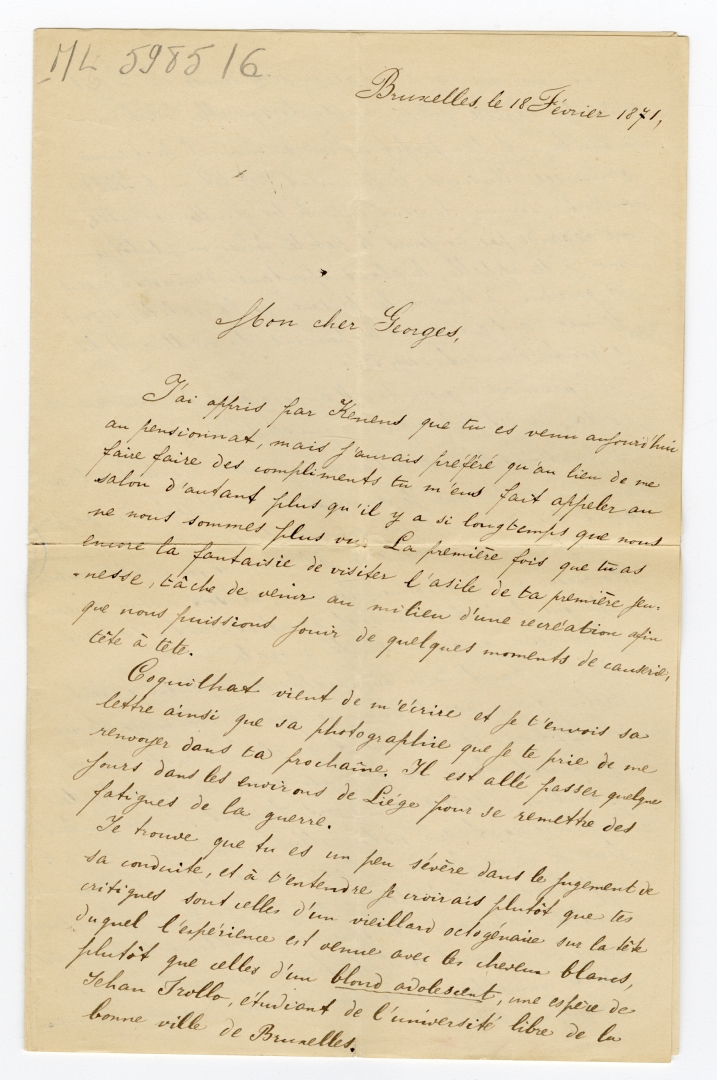 ML 5985/6
Bruxelles, le 18 Février 1871,
Mon cher Georges,
J'ai appris par Kenens que tu es venu aujourd'hui
au pensionnat, mais j'aurais préféré qu'au lieu de me
faire faire des compliments tu m'eus fait appeler au
salon d'autant plus qu'il y a si longtemps que nous
ne nous sommes plus vu. La première fois que tu as
encore la fantaisie de visiter l'asile de ta première jeu-
-nesse, tâche de venir au milieu d'une recréation afin
que nous puissions jouir de quelques moments de causerie,
tête à tête.
Coquilhat vient de m'écrire et je t'envois sa
lettre ainsi que sa photographie que je te prie de me
renvoyer dans ta prochaine. Il est allé passer quelque
jours dans les environs de Liége pour se remettre des
fatigues de la guerre.
Je trouve que tu es un peu sévère dans le jugement de
sa conduite, et à t'entendre je croirais plutôt que tes
critiques sont celles d'un vieillard octogénaire sur la tête
duquel l'espérience est venue avec les cheveux blancs,
plutôt que celles d'un blond adolescent, une espèce de
Jehan Frollo, étudiant de l'université libre de la
bonne ville de Bruxelles.